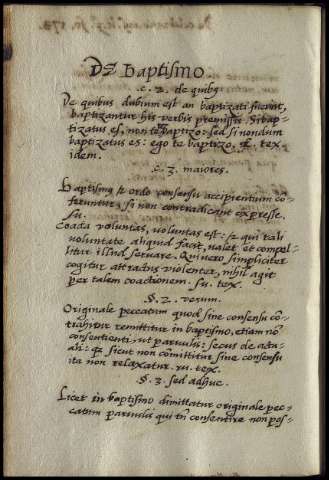 De Baptismo
.c. 2. de quibꝰ
De quibus dubium est an baptizati fuerint,
baptizantur his verbis premissis. Si bap-
tizatus es, non te baptizo: sed si nondum
baptizatus es: ego te baptizo, &. tex
idem.
.c. 3. maiores.
Baptismꝰ & ordo consensu accipientium cō-
feruntur, si non contradicant expresse.
su.
Coacta voluntas, voluntas est: & qui tali
voluntate aliquid facit, valet et compel-
litur illud servare. Qui vero simpliciter
cogitur attractus violenter, nihil agit
per talem coactionem. su. tex.
§. 2. verum.
Originale peccatum quod sine consensu cō-
trahitur remittitur in baptismo, etiam nō
consentienti, ut parvulis: secus de actu-
ali: quia sicut non comittitur sine consensu
ita non relaxatur. su. tex.
§. 3. sed adhuc.
Licet in baptismo dimittatur originale pec-
catum parvulis qui tñ consentire non pos-